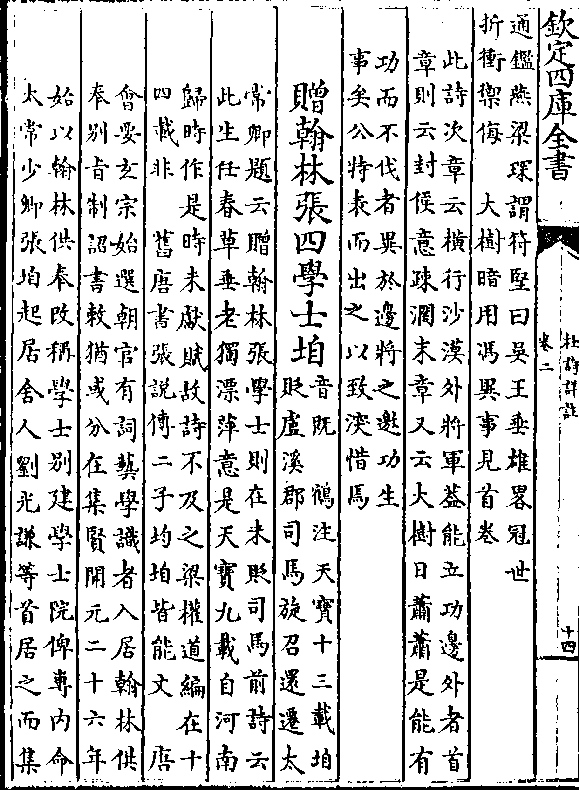 欽定四庫全書
杜詩詳註
卷二
十四
通鑑燕梁琛謂符堅曰吳王垂雄畧冠世
折衝禦侮　大樹暗用馮異事見首卷
此詩次章云橫行沙漠外將軍葢能立功邊外者首
章則云封侯意疎濶末章又云大樹日蕭蕭是能有
功而不伐者異於邊將之邀功生
事矣公特表而出之以致深惜焉
贈翰林張四學士垍
音既　鶴注天寶十三載垍
貶盧溪郡司馬旋召還遷太
常卿題云贈翰林張學士則在未貶司馬前詩云
此生任春草垂老獨漂萍意是天寶九載自河南
歸時作是時未獻賦故詩不及之梁權道編在十
四載非　舊唐書張説傳二子均垍皆能文　唐
會要玄宗始選朝官有詞藝學識者入居翰林供
奉别旨制詔書敕猶或分在集賢開元二十六年
始以翰林供奉改稱學士别建學士院俾専内命
太常少卿張垍起居舍人劉光謙等首居之而集